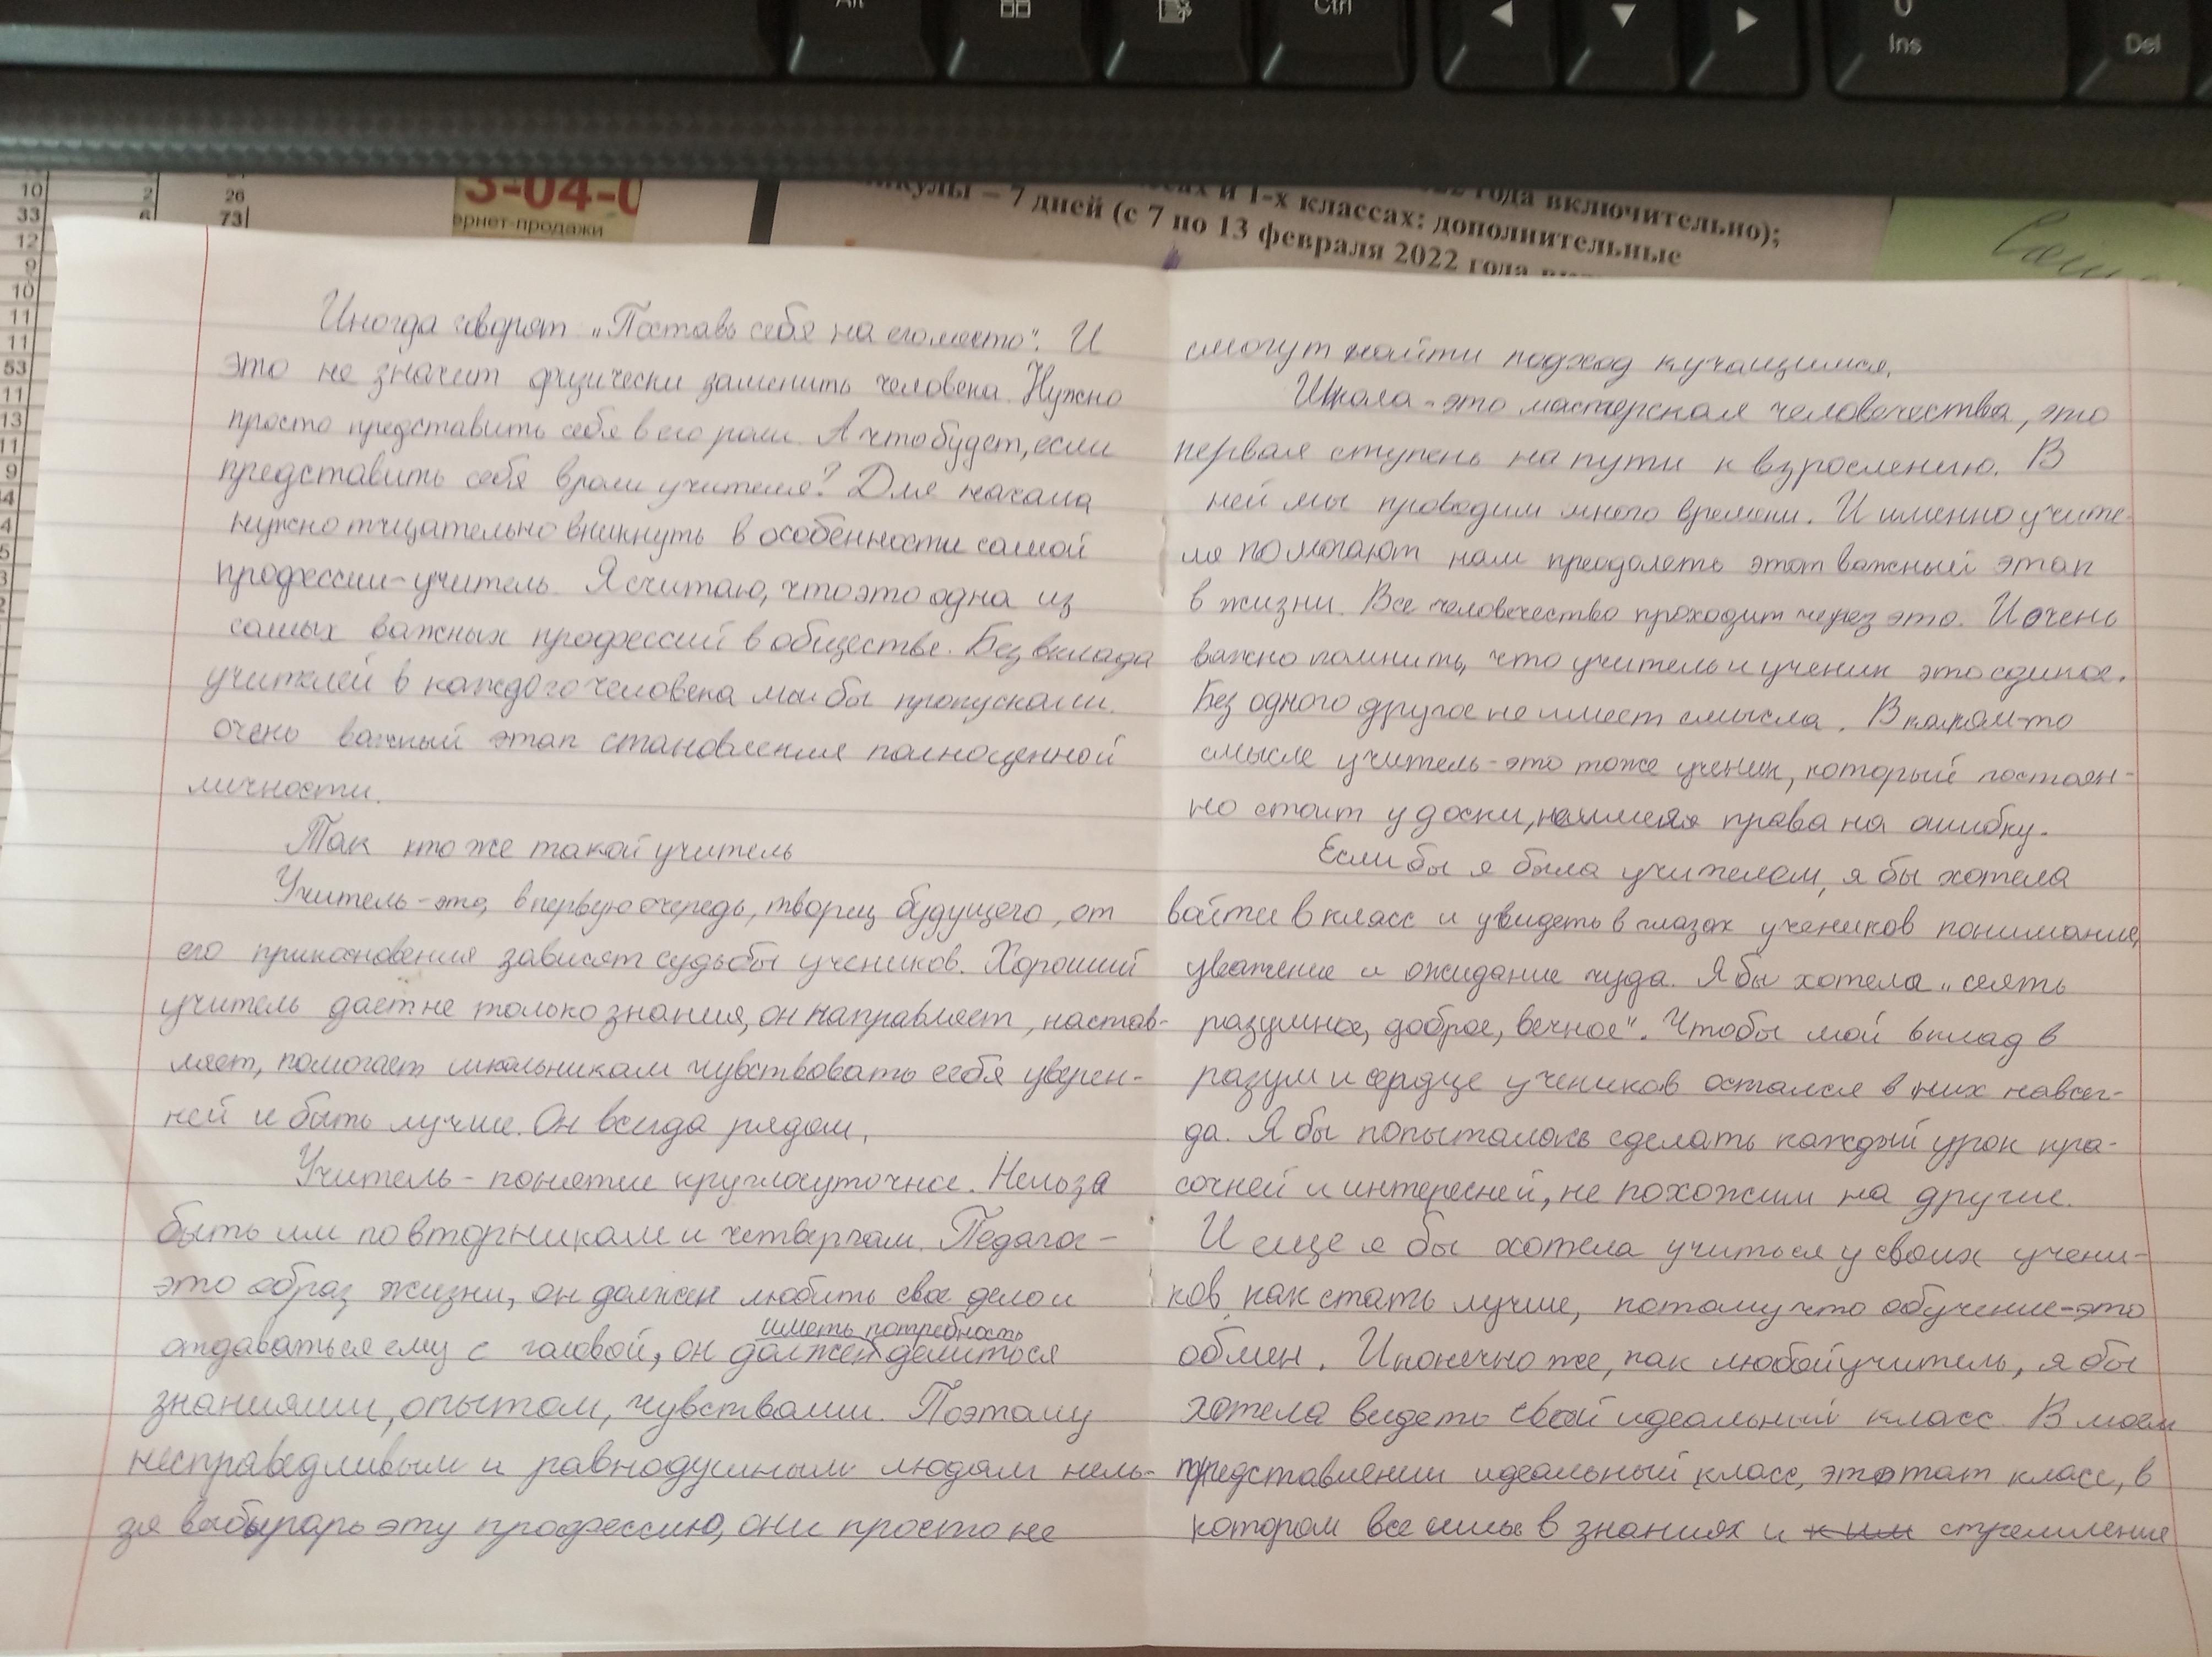 Alt
Ctrl
0
Ins
Del
10 2 26
33 6 73
12
9
10
11
11
53
11
13
11
9
3-04-0
ернет-продажи
22 года включительно);
ах и 1-х классах: дополнительные
икулы – 7 дней (с 7 по 13 февраля 2022 года
Иногда говорят „Поставь себя на его место". И
это не значит физически заменить человека. Нужно
просто представить себя в его роли. А что будет, если
представить себя в роли учителя? Для начала
нужно тщательно вникнуть в особенности самой
профессии-учитель. Я считаю, что это одна из
самых важных профессий в обществе. Без вклада
учителей в каждого человека мы бы пропускали
очень важный этап становления полноценной
личности.
Так кто же такой учитель
Учитель - это, в первую очередь, творец будущего, от
его прикосновения зависят судьбы учеников. Хороший
учитель даёт не только знания, он направляет, настав-
ляет, помогает школьникам чувствовать себя уверен-
ней и быть лучше. Он всегда рядом.
Учитель - понятие круглосуточное. Нельзя
быть им по вторникам и четвергам. Педагог -
это образ жизни, он должен любить свое дело и
отдаваться ему с головой, он должен иметь потребность делиться
знаниями, опытом, чувствами. Поэтому
несправедливым и равнодушным людям нель-
зя выбырарь эту профессию, они просто не
смогут найти подход к учащимся.
Школа - это мастерская человечества, это
первая ступень на пути к взрослению. В
ней мы проводим много времени. И именно учите-
ля помогают нам преодолеть этот важный этап
в жизни. Все человечество проходит через это. И очень
важно помнить, что учитель и ученик это единое.
Без одного другое не имеет смысла. В каком-то
смысле учитель - это тоже ученик, который постоян-
но стоит у доски, не имея права на ошибку.
Если бы я была учителем, я бы хотела
войти в класс и увидеть в глазах учеников понимание,
уважение и ожидание чуда. Я бы хотела „сеять
разумное, доброе, вечное". Чтобы мой вклад в
разум и сердце учеников остался в них навсег-
да. Я бы попыталась сделать каждый урок кра-
сочней и интересней, не похожим на другие.
И еще я бы хотела учиться у своих учени-
ков, как стать лучше, потому что обучение - это
обмен. И конечно же, как любой учитель, я бы
хотела видеть свой идеальный класс. В моем
представлении идеальный класс, это тот класс, в
котором все силы в знаниях и к ним стремление